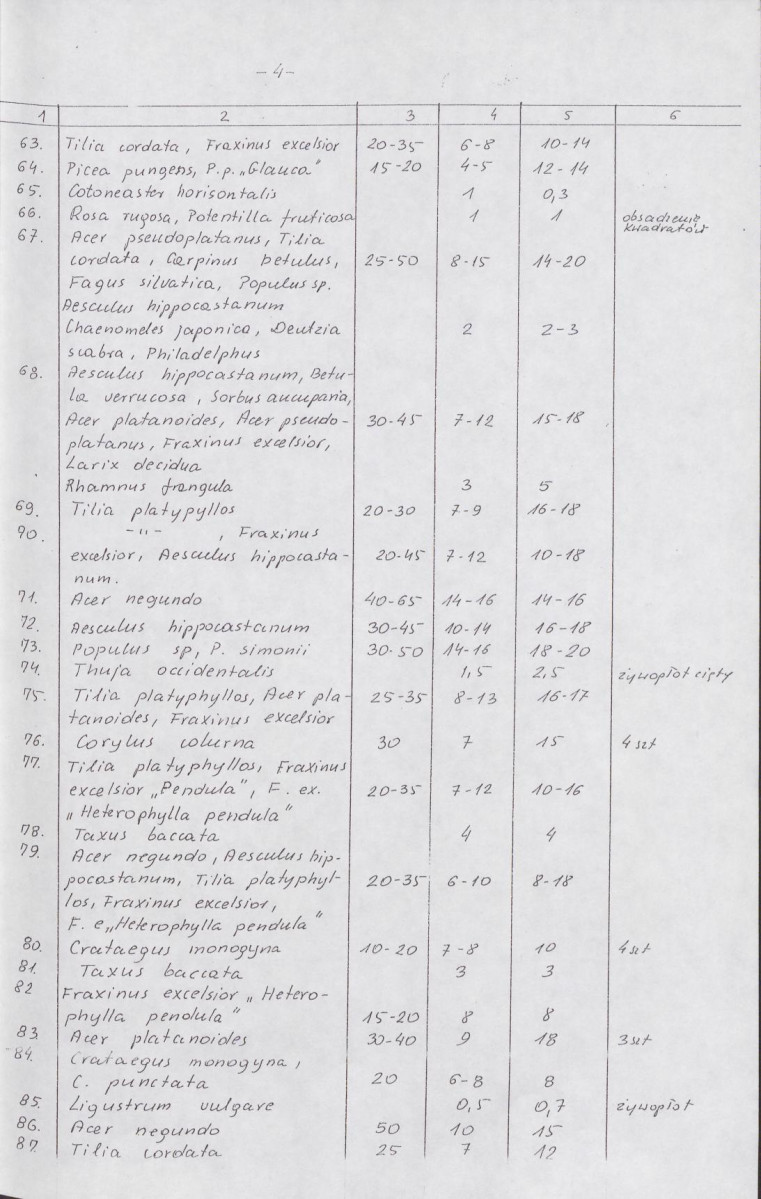 - 4 -
1 2 3 4 5 6
63. Tilia cordata, Fraxinus excelsior 20-35 6-8 10-14
64. Picea pungens, P.p. „Glauca" 15-20 4-5 12-14
65. Cotoneaster horisontalis 1 0,3
66. Rosa rugosa, Potentilla fruticosa 1 1 obsadzenie
67. Acer pseudoplatanus, Tilia kwadratów
cordata, Carpinus betulus, 25-50 8-15 14-20
Fagus silvatica, Populus sp.
Aesculus hippocastanum
Chaenomeles japonica, Deutzia 2 2-3
scabra, Philadelphus
68. Aesculus hippocastanum, Betu-
la verrucosa, Sorbus aucuparia,
Acer platanoides, Acer pseudo- 30-45 7-12 15-18
platanus, Fraxinus excelsior,
Larix decidua
Rhamnus frangula 3 5
69. Tilia platypyllos 20-30 7-9 16-18
70. -"- , Fraxinus
excelsior, Aesculus hippocasta- 20-45 7-12 10-18
num.
71. Acer negundo 40-65 14-16 14-16
72. Aesculus hippocastanum 30-45 10-14 16-18
73. Populus sp, P. simonii 30-50 14-16 18-20
74. Thuja occidentalis 1,5 2,5 żywopłot cięty
75. Tilia platyphyllos, Acer pla- 25-35 8-13 16-17
tanoides, Fraxinus excelsior
76. Corylus colurna 30 7 15 4 szt
77. Tilia platyphyllos, Fraxinus
excelsior „Pendula", F. ex. 20-35 7-12 10-16
„Heterophylla pendula"
78. Taxus baccata 4 4
79. Acer negundo, Aesculus hip-
pocastanum, Tilia platyphyl- 20-35 6-10 8-18
los, Fraxinus excelsior,
F. e „Heterophylla pendula"
80. Crataegus monogyna 10-20 7-8 10 4 szt
81. Taxus baccata 3 3
82 Fraxinus excelsior „Hetero-
phylla pendula" 15-20 8 8
83. Acer platanoides 30-40 9 18 3 szt
84. Crataegus monogyna,
C. punctata 20 6-8 8
85. Ligustrum vulgare 0,5 0,7 żywopłot
86. Acer negundo 50 10 15
87. Tilia cordata 25 7 12